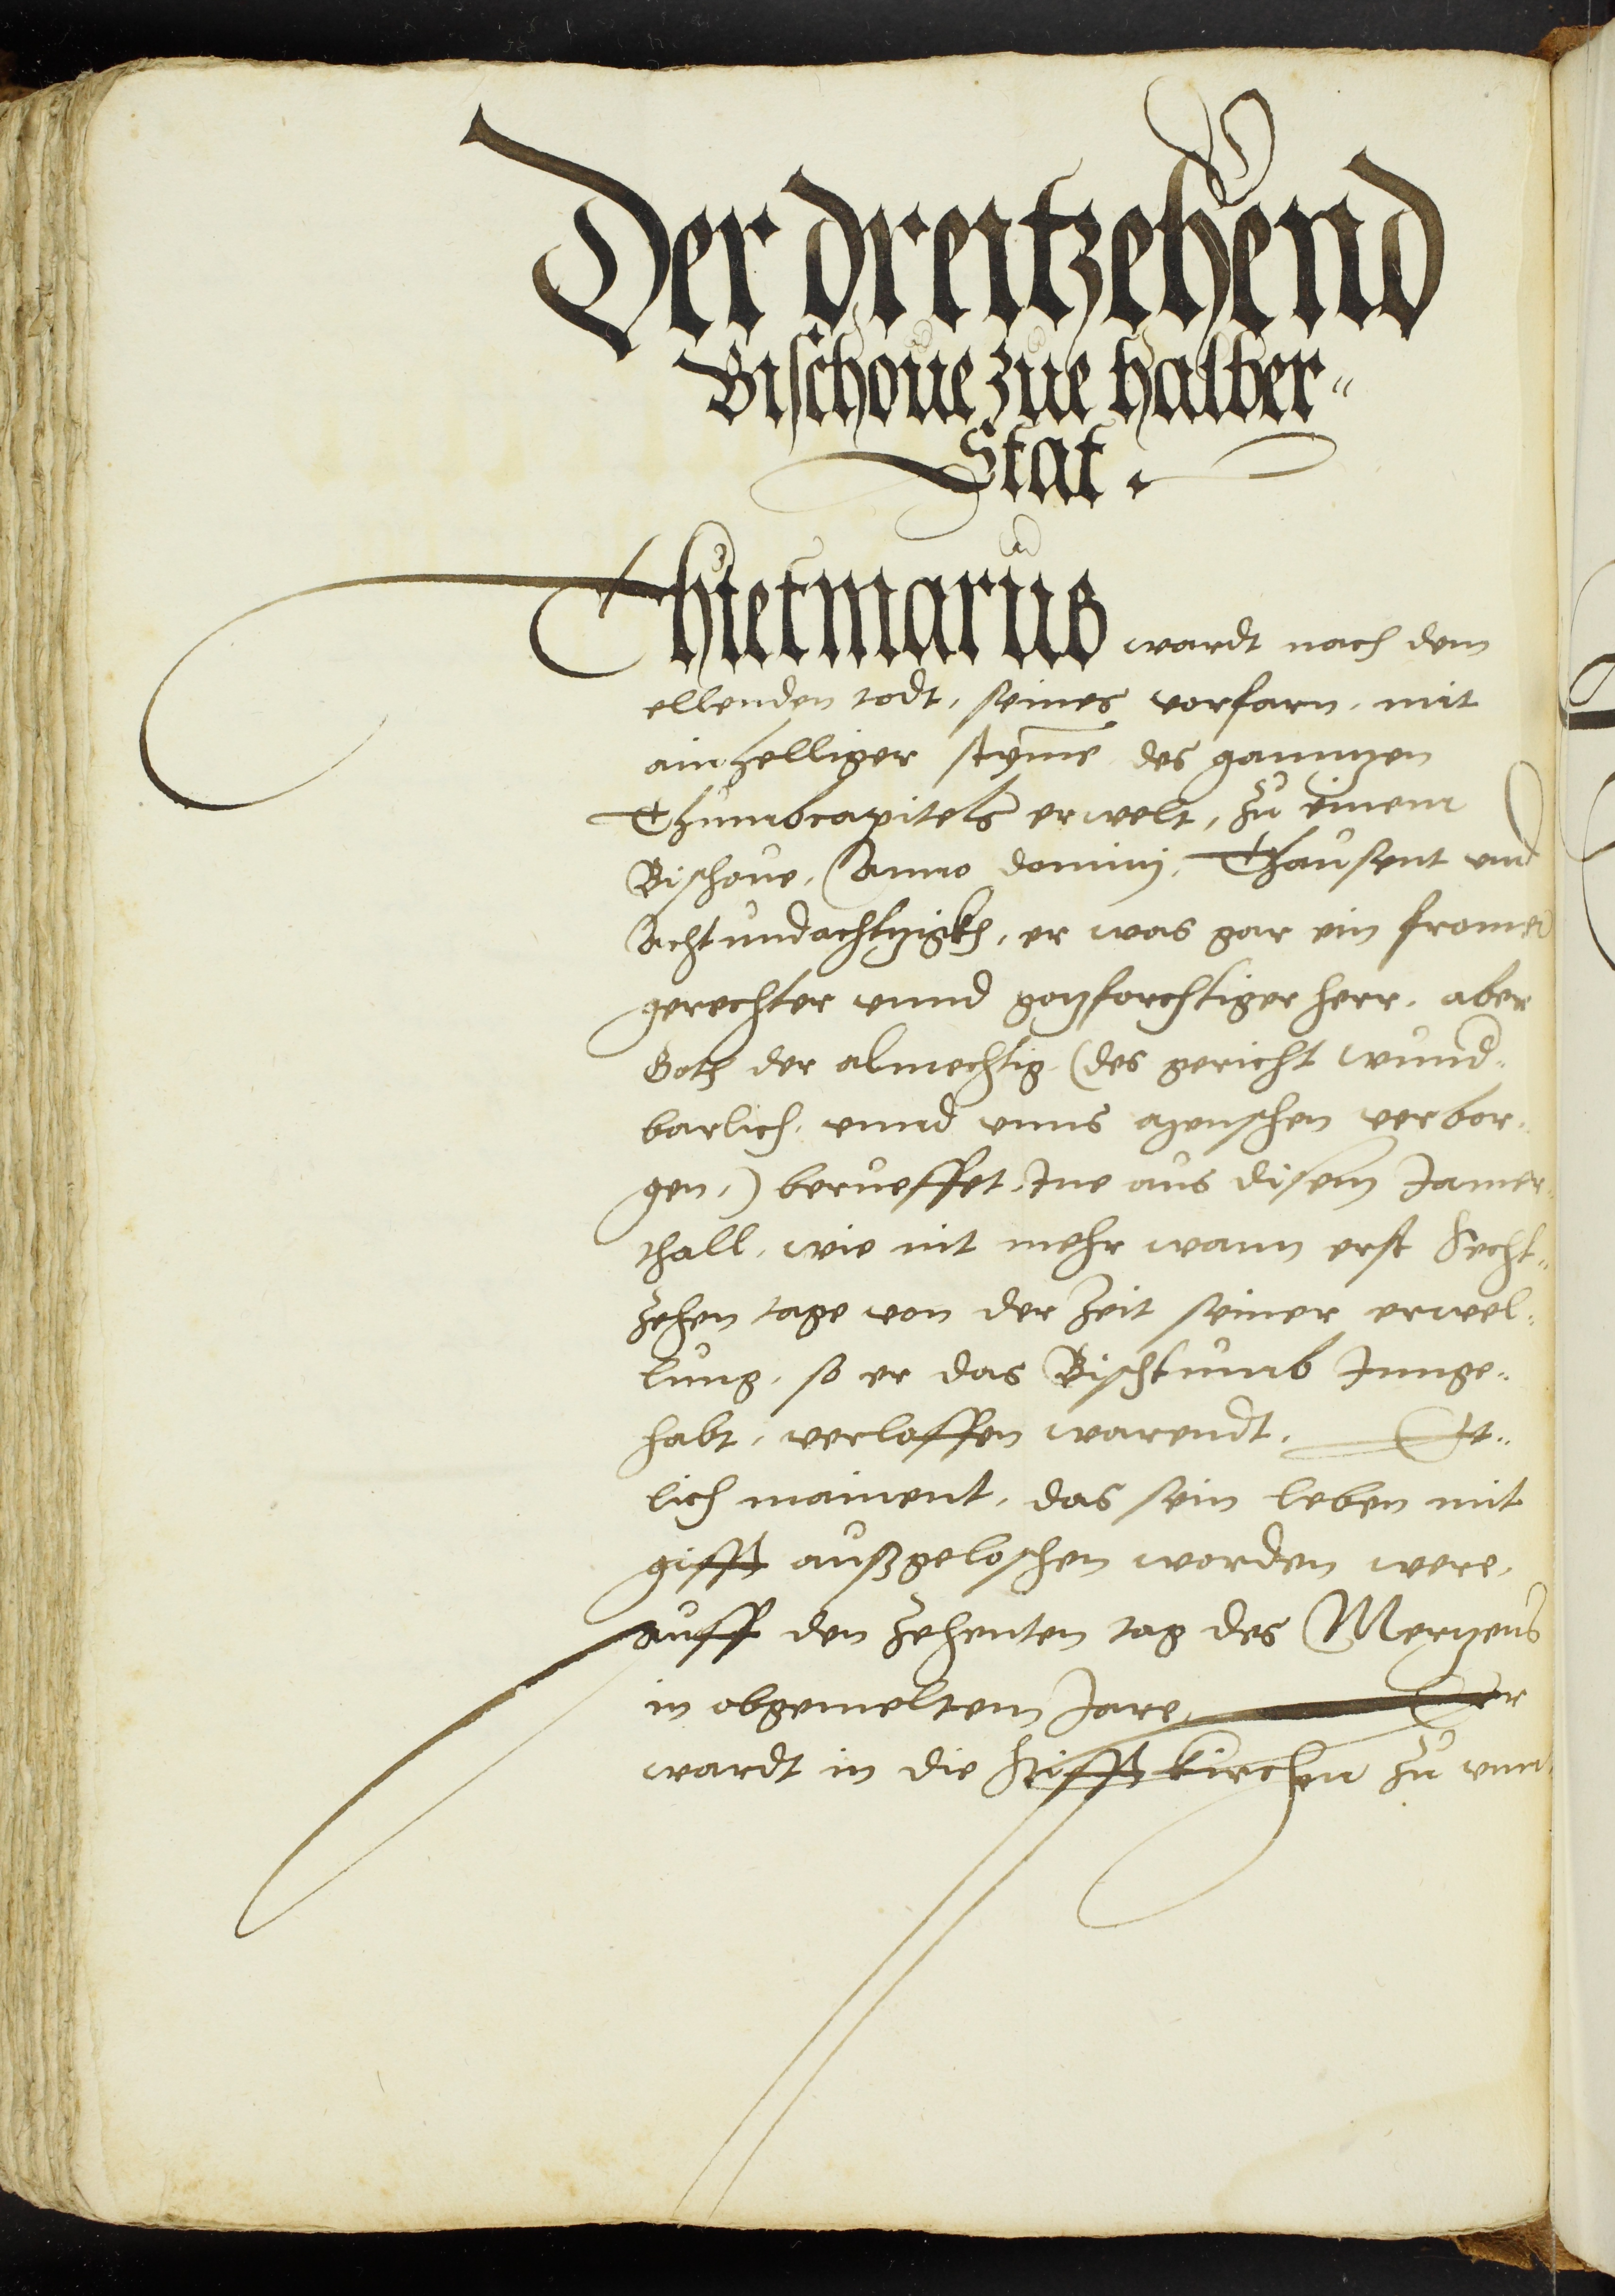 Der dreitzehend
Bischoue zue halber=
Stat.
Thietmarus wardt nach dem
ellenden todt, seines vorfarn, mit
ainhelliger styme des ganntzen
Thumbcapitels erwelt, zu einem
Bischoue, Anno dominj, Thausent und
Acht und achtzigkh, er was gar ein fromer
gerechter vnnd gotzforchtiger herr, aber
Goth der almechtig (des gericht wund=
barlich, vnnd vnns menschen verbor=
gen,) berueffet Ine aus disem Jamer=
thall, wie nit mehr wann erst Secht=
zehen tage von der zeit seiner erwel=
lung, so er das Bischtumb Innge=
habt, verloffen warendt. Et=
lich mainent, das sein leben mit
gifft außgeloschen worden were,
auff den zehenten tag des Mertzens
in obgemeltem Jare, Er
wardt in die Stifft kirchen zu vnn=